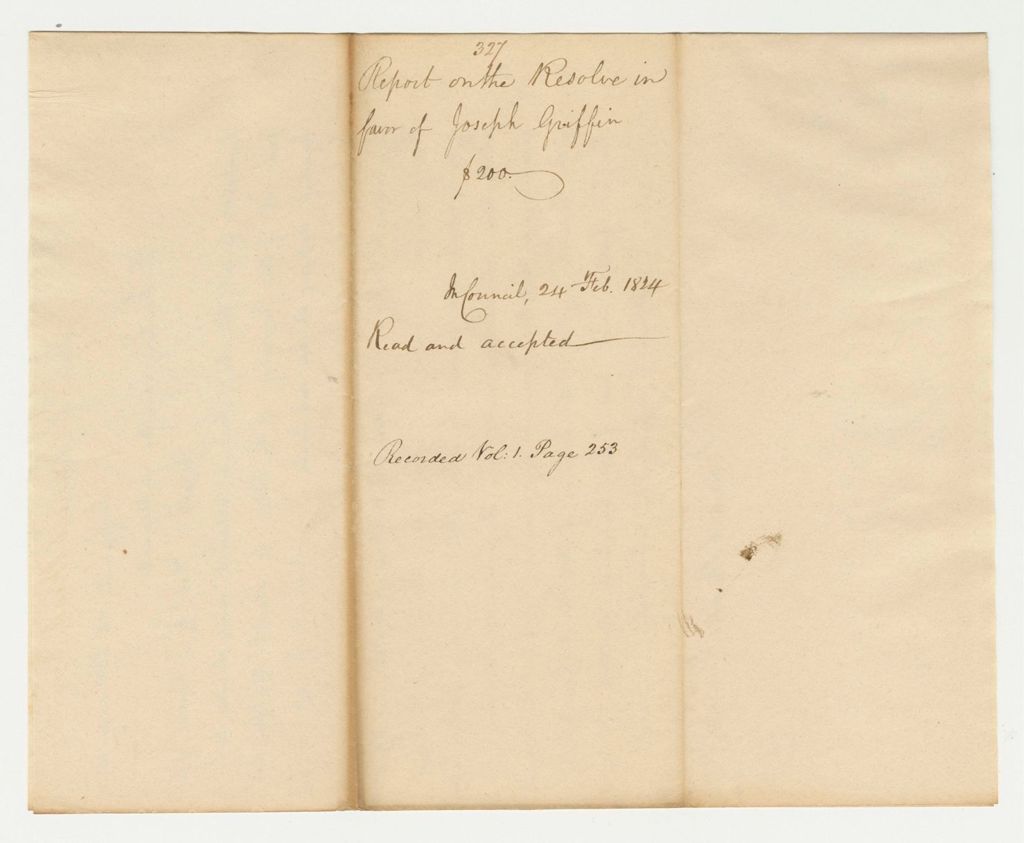 327
Report on the Resolve in
favor of Joseph Griffin
$200.
In Council, 24 Feb. 1824
Read and accepted
Recorded Vol: 1. Page 253